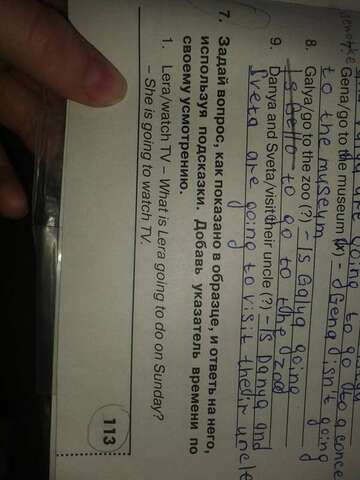 going to go to a conce
Gena/go to the museum (–) – Gena isn't going
to the museum
8. Galya/go to the zoo (?) – Is Galya going
to go to the zoo
9. Danya and Sveta/visit their uncle (?) – Is Danya and
Sveta are going to visit their uncle
7. Задай вопрос, как показано в образце, и ответь на него,
используя подсказки. Добавь указатель времени по
своему усмотрению.
1. Lera/watch TV – What is Lera going to do on Sunday?
– She is going to watch TV.
113